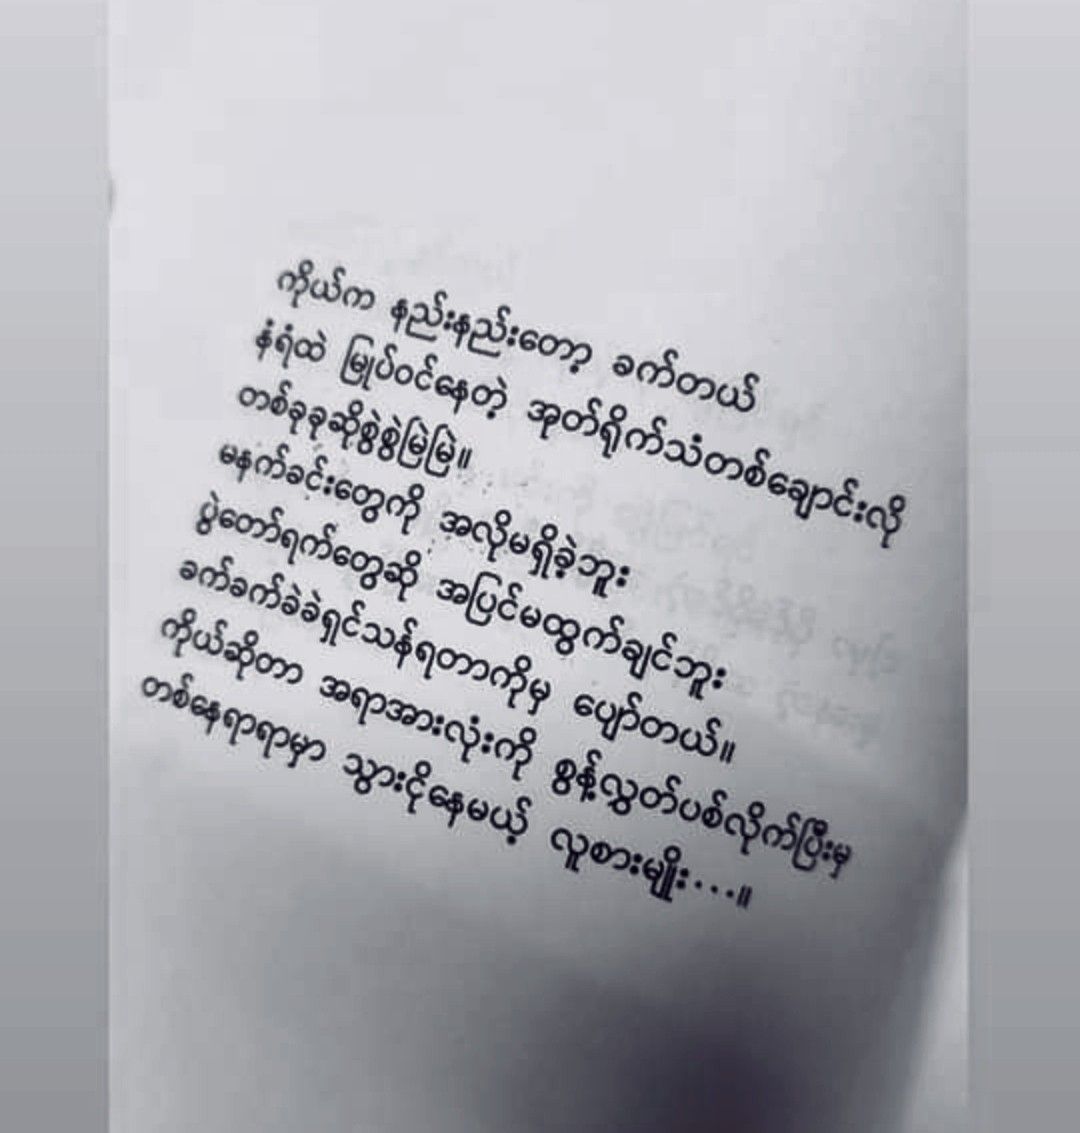 ကိုယ်က နည်းနည်းတော့ ခက်တယ်
နံရံထဲ မြုပ်ဝင်နေတဲ့ အုတ်ရိုက်သံတစ်ချောင်းလို
တစ်ခုခုဆိုစွဲစွဲမြဲမြဲ။
မနက်ခင်းတွေကို အလိုမရှိခဲ့ဘူး
ပွဲတော်ရက်တွေဆို အပြင်မထွက်ချင်ဘူး
ခက်ခက်ခဲခဲရှင်သန်ရတာကိုမှ ပျော်တယ်။
ကိုယ်ဆိုတာ အရာအားလုံးကို စွန့်လွှတ်ပစ်လိုက်ပြီးမှ
တစ်နေရာရာမှာ သွားငိုနေမယ့် လူစားမျိုး...။